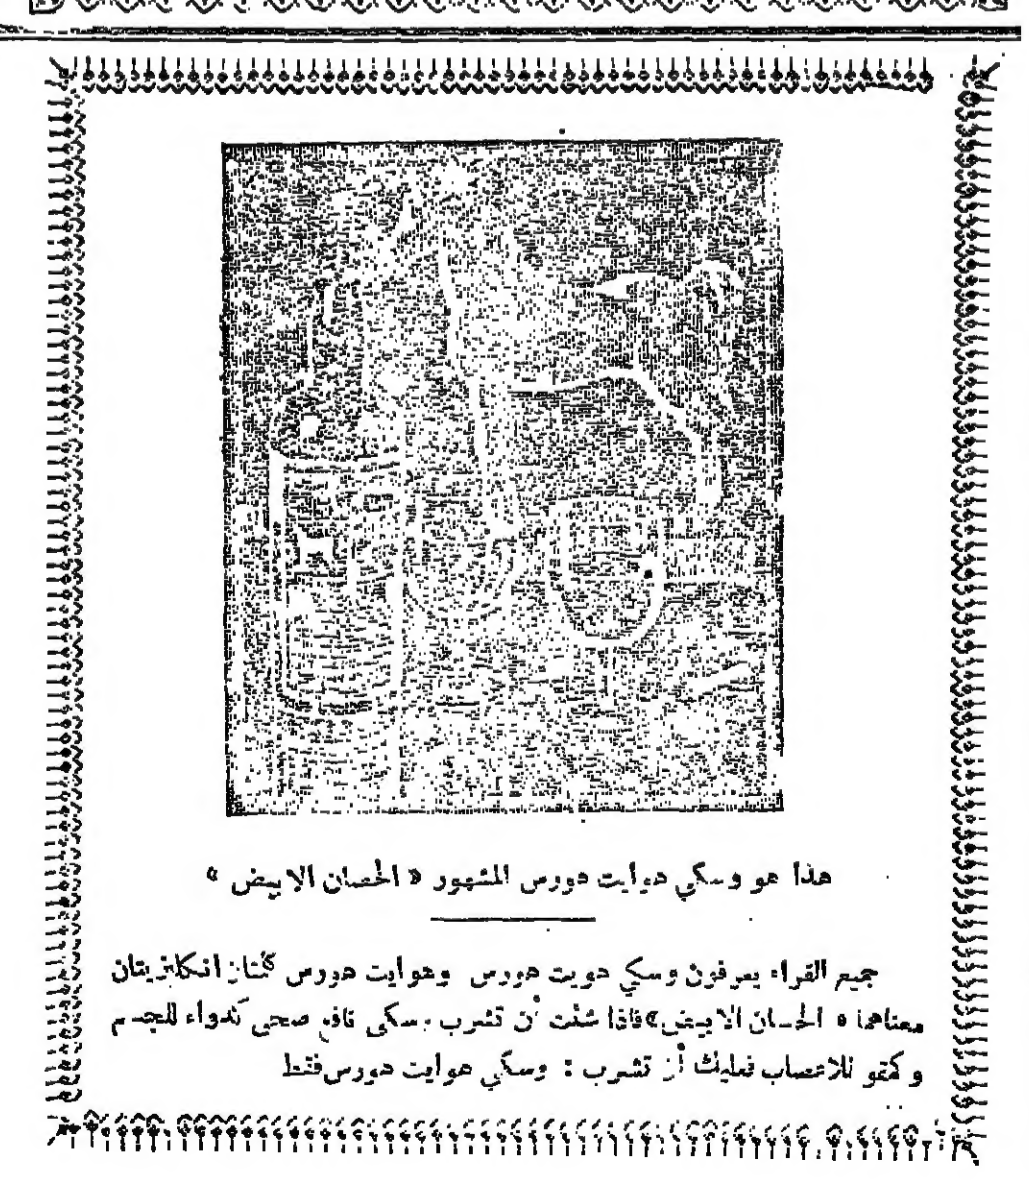 هذا هو وسكي هوايت هورس المشهور « الحصان الابيض »
جميع القراء يعرفون وسكي هويت هورس وهوايت هورس كلمتان انكليزيتان
معناهما « الحصان الابيض » فاذا شئت أن تشرب وسكي نافع صحي كدواء للجسم
وكمقو للاعصاب فعليك أن تشرب : وسكي هوايت هورس فقط